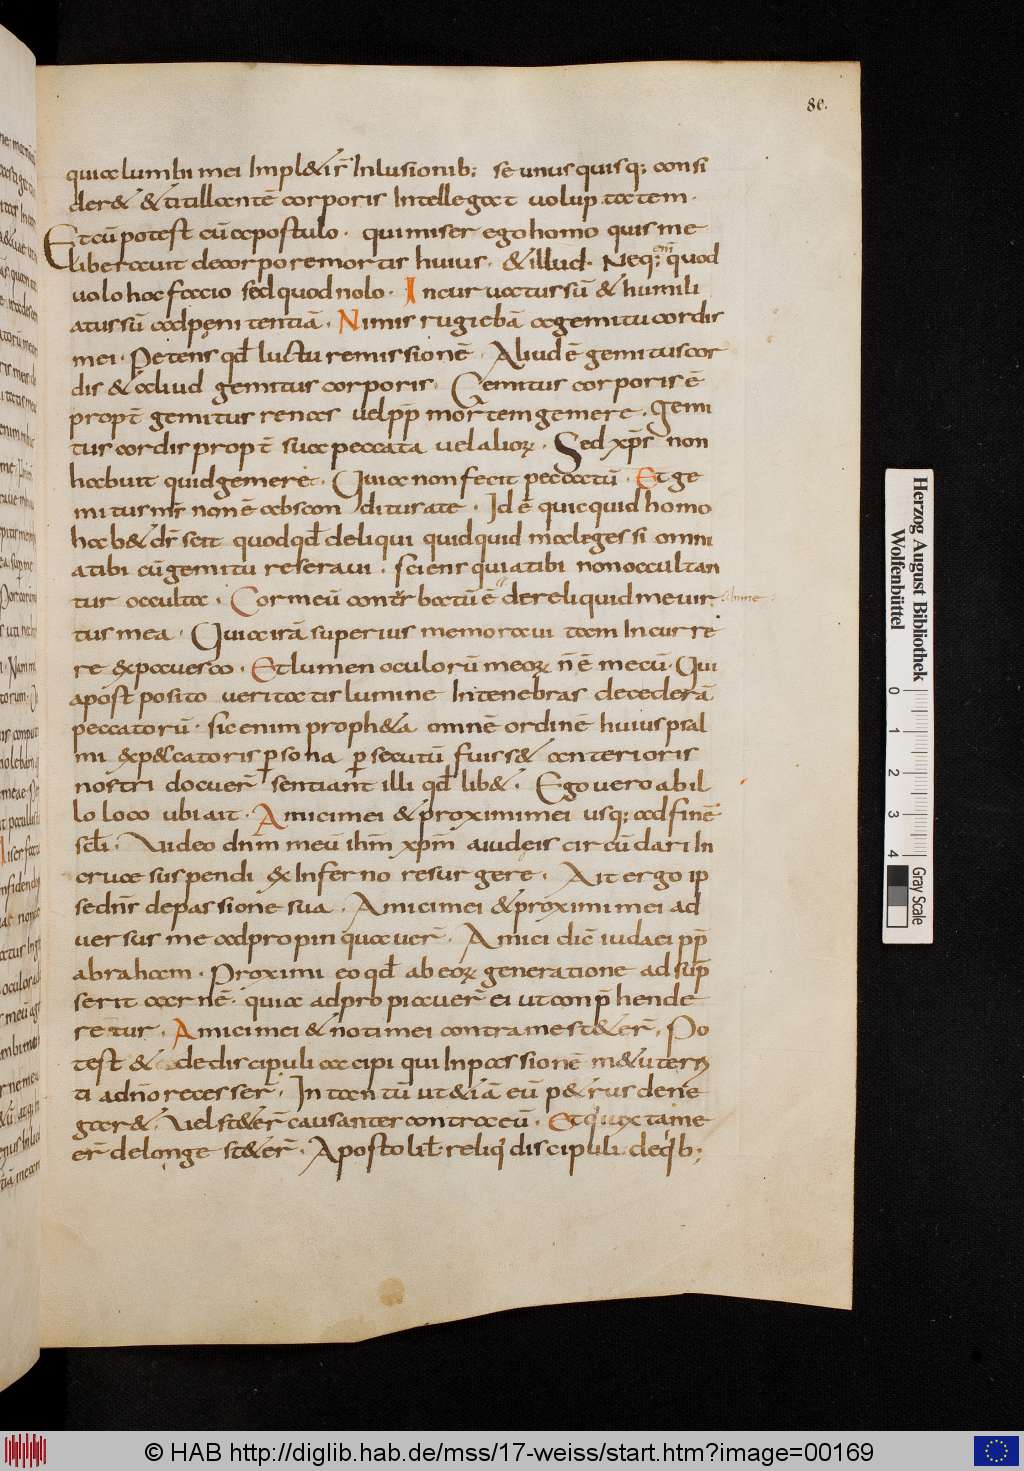 80.
quia lumbi mei Impl&i sr̄ Inlusionib; se unus quisq; consi
der& & titillantē corporis Intellegat uoluptatem·
Et cū potest cū apostulo· qui miser ego homo quis me
liberauit de corpore mortis huius· & illud· Neq; em̄ quod
uolo hoc facio sed quod nolo· Incuruatus sū & humili
atus sū ad peni tentiā· Nimis rugiebā a gemitu cordis
mei· Petens qđ luctu remissionē· Aliud ē gemitus cor
dis & aliud gemitus corporis· Gemitus corporis ē
propt̄ gemitus renoes uel pp̄ mortem gemere· gemi
tus cordis propt̄ sua peccata uel alioꝝ· Sed xp̄s non
habuit quid gemere· Quia non fecit peccatū· Et ge
mitus ms̄ non ē abscon ditus a te· Id ē quicquid homo
hab& dr̄ scit quod qđ deliqui quidquid maleges si omni
a tibi cū gemitu reseraui· sciens quia tibi non occultan
tur occulta· Cor meū conts̄ batū ē dereliquid me uir
tus mea· Quia irā superius memoraui tam Incurre
re expauesco· Et lumen oculorū meoꝝ n̄ ē mecū· Qui
apost posito ueritatis lumine In tenebras decederā
peccatorū· sic enim proph&a omnē ordinē huius psal
mi ex p&catoris ꝑsona ꝑsecutū fuiss& anterioris
nostri docuer̄ sentiant illi qđ lib&· Ego uero ab il
lo loco ubi ait· Amici mei & proximi mei usq; ad finē
scđi· Video dn̄m meū ihm̄ xpm̄ a iudeis circūdari In
cruce suspendi & Inferno resurgere· Ait ergo ip
se dn̄s de passione sua· Amici mei & proximi mei ad
uersus me adpropinquauer̄· Amici dic̄ iudaei pp̄
abraham· Proximi eo qđ ab eoꝝ generatione adsūp
serit carnē· quia adpropiauer̄ ei ut conp̄hende
retur· Amici mei & noti mei contra me st&er̄· Po
test & de discipuli accipi qui In passionē m&u terri
ti a dn̄o recesser̄· In tantū ut &iā eū p&rus dene
gar&· Vel st&er̄ causantes contra eū· Et qui iuxta me
er̄ de longe st&er̄· Apostoli· reliq discipuli· de qb;
Herzog August Bibliothek
Wolfenbüttel
0 1 2 3 4
Gray Scale
© HAB http://diglib.hab.de/mss/17-weiss/start.htm?image=00169